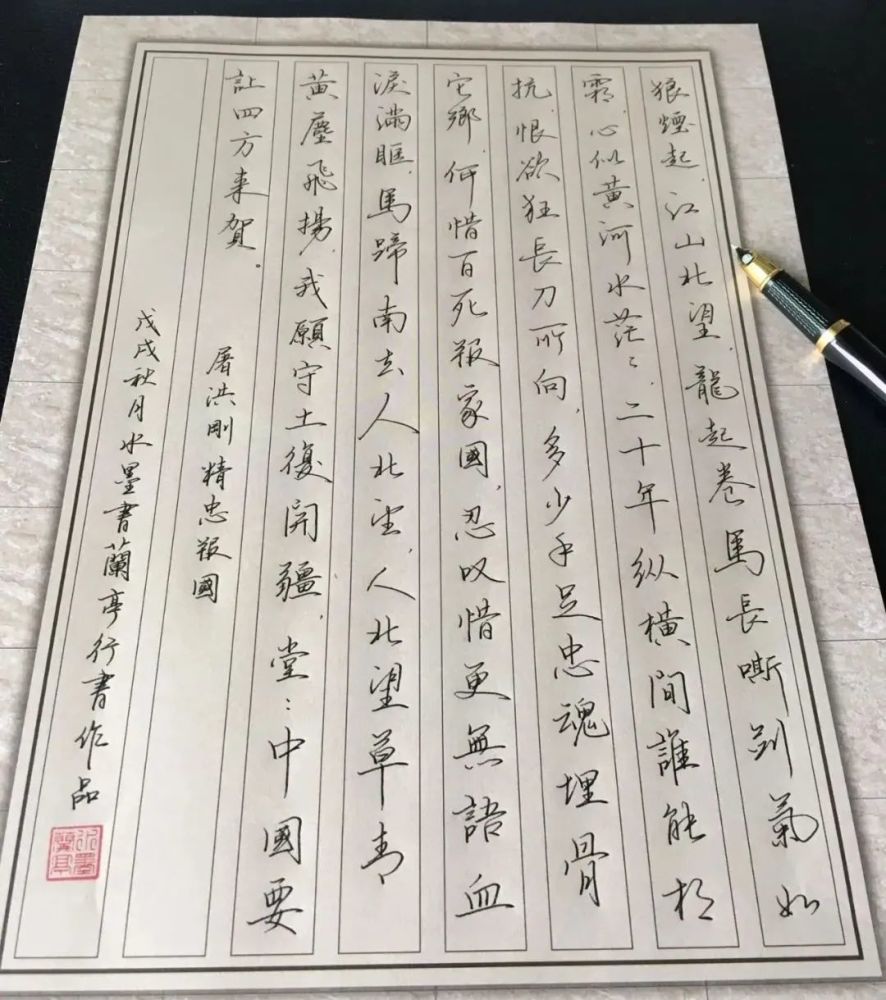 狼煙起，江山北望，龍起卷馬長嘶劍氣如
霜，心似黃河水茫々，二十年纵橫間誰能相
抗，恨欲狂長刀所向，多少手足忠魂埋骨
它鄉，何惜百死報家國，忍叹惜更無語血
淚滿眶，馬蹄南去人北望，人北望草青
黃塵飛揚，我願守土復開疆，堂々中國要
讓四方來賀。
屠洪剛精忠報國
戊戌秋月水墨書蘭亭行書作品